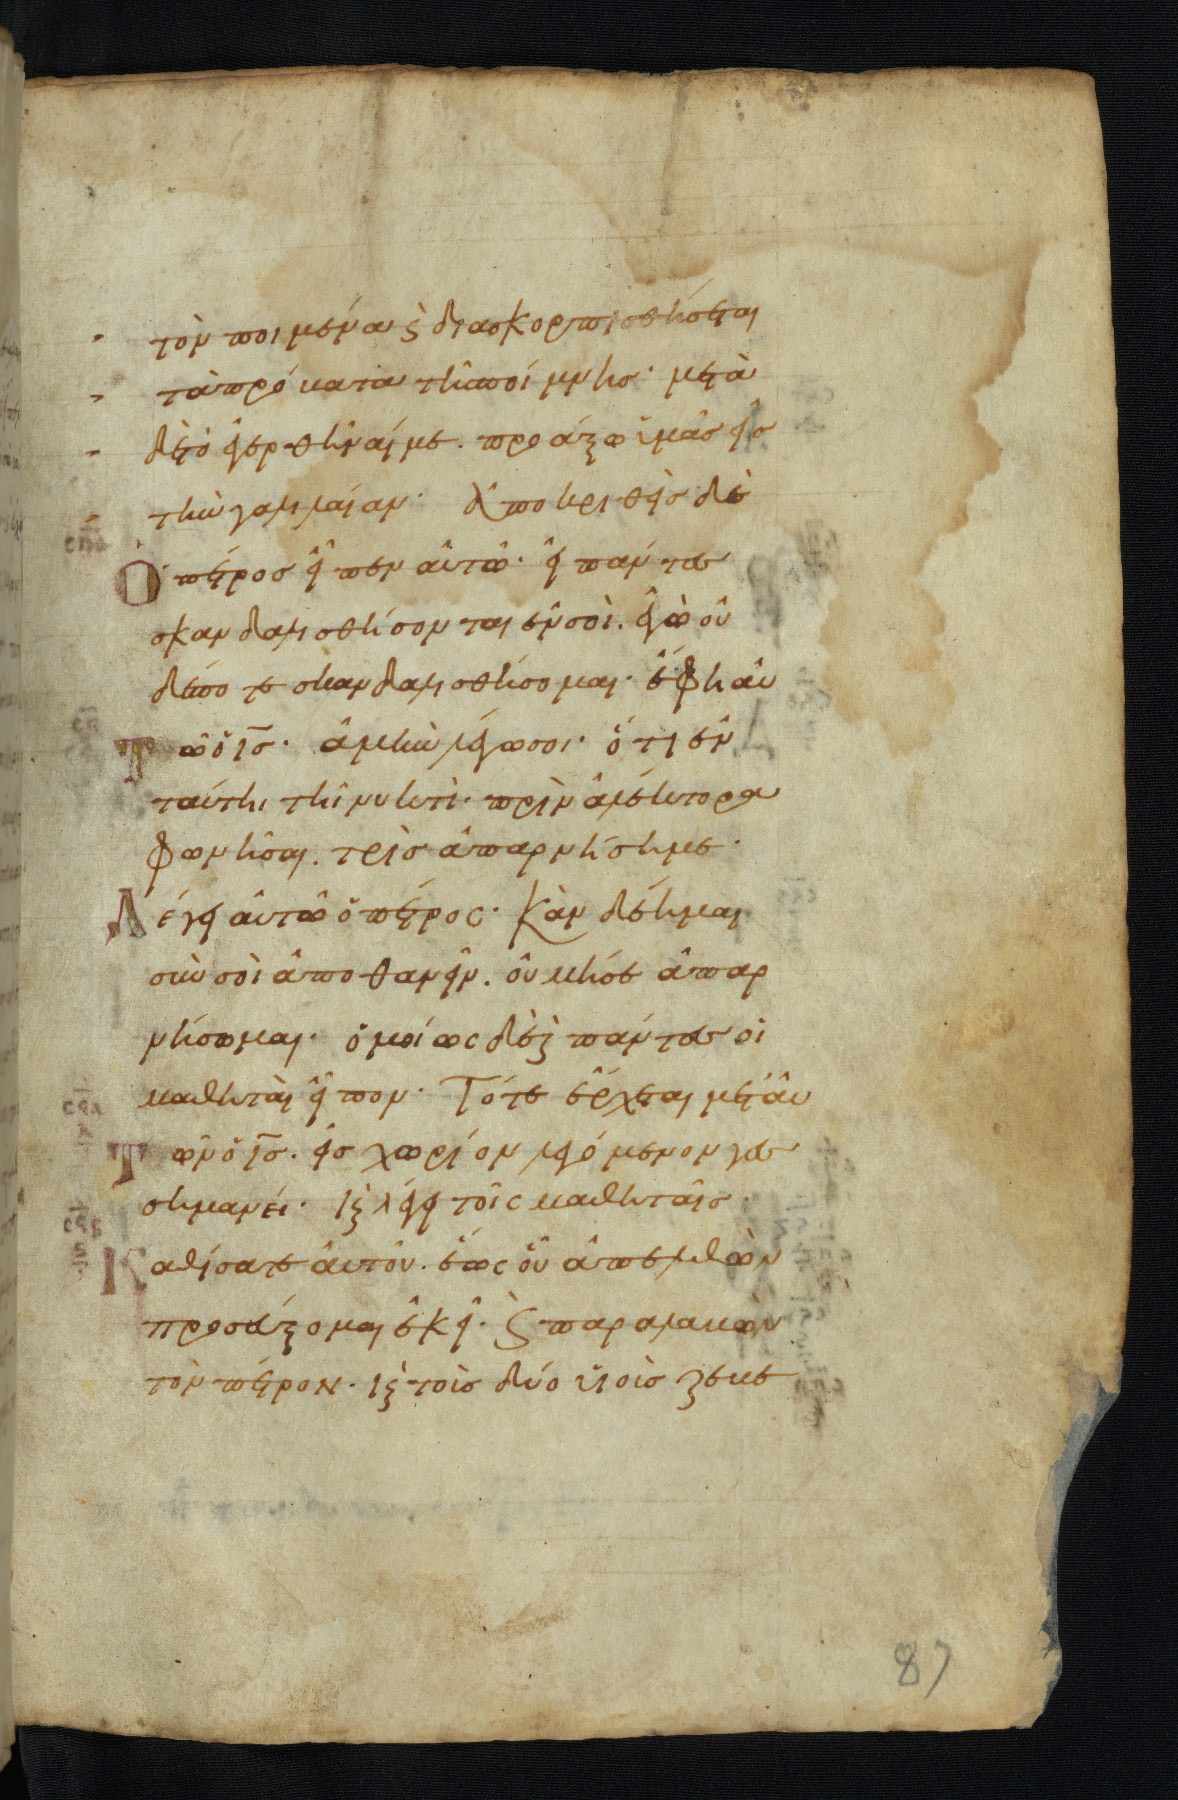 τὸν ποιμένα καὶ διασκορπισθήσεται
τὰ πρόβατα τῆς ποίμνης· μετὰ
δὲ τὸ ἐγερθῆναί με. προάξω ὑμᾶς εἰς
τὴν γαλιλαίαν· Ἀποκριθεὶς δὲ
Ὁ πέτρος εἶπεν αὐτῶ· εἰ πάντες
σκανδαλισθήσονται ἐν σοὶ. ἐγὼ οὐ
δέποτε σκανδαλισθήσομαι· ἔφη αὐ
Τῶ ὁ ις· ἀμὴν λέγω σοι· ὅτι ἐν
ταύτη τῆ νυκτὶ· πρὶν ἀλέκτορα
φωνῆσαι. τρὶς ἀπαρνήση με·
Λέγει αὐτῶ ὁ πέτρος· Κὰν δέη με
σὺν σοὶ ἀποθανεῖν. οὐ μή σε ἀπαρ
νήσωμαι· ὁμοίως δὲ καὶ πάντες οἱ
μαθηταὶ εἶπον· Τότε ἔρχεται μετ' αὐ
Τῶν ὁ ις. εἰς χωρίον λεγόμενον γεθ
σημανεί· καὶ λέγει τοῖς μαθηταῖς
Καθίσατε αὐτοῦ. ἕως οὗ ἀπελθὼν
προσεύξομαι ἐκεῖ· καὶ παραλαβὼν
τὸν πέτρον. καὶ τοὺς δύο υἱοὺς ζεβε
87